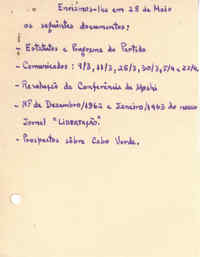 Enviamos-lhe em 28 de Maio
os seguintes documentos:
- Estatutos e Programa do Partido
- Comunicados: 9/3, 11/3, 25/3, 30/3, 5/4 e 22/4
- Resolução da Conferência de Moshi
- Nº de Dezembro/1962 e Janeiro/1963 do nosso
Jornal "LIBERTAÇÃO".
- Prospectos sôbre Cabo Verde.